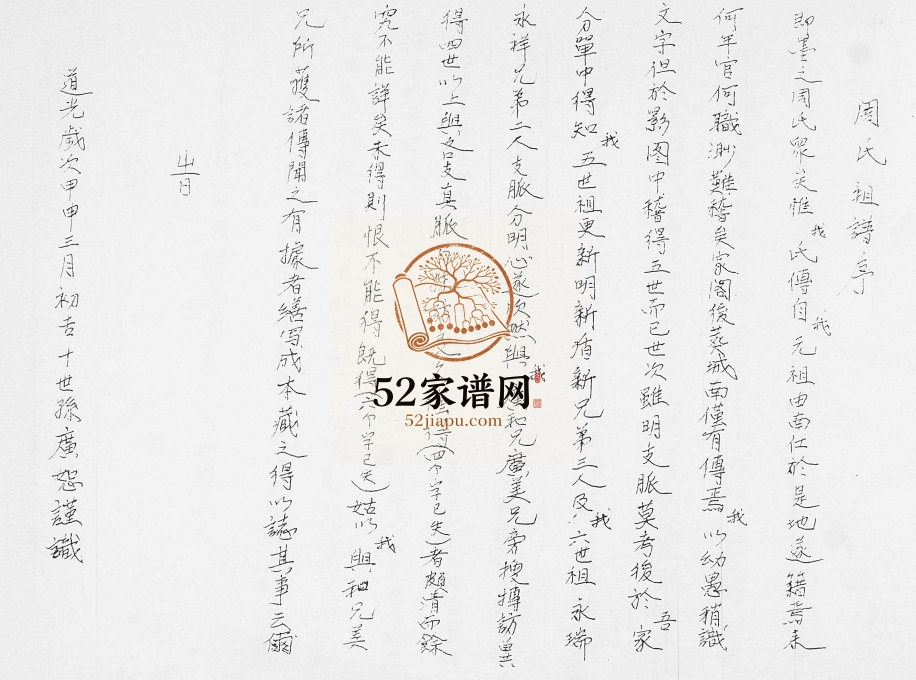 周氏祖譜序
即墨之周氏眾矣惟我氏傳自我元祖由南仕於是地遂籍焉未
何年官何職渺難稽矣家閣後葬城南僅有傳焉我以幼愚稍識
文字但於影图中稽得五世而已世次雖明支脈莫考後於吾家
分單中得知我五世祖更新明新盾新兄弟三人及我六世祖永瑞
永祥兄弟二人支脈分明心遂次然與我和兄廣美兄旁搜摶訪異
得四世以上與各支真脈 四个字已失者頗清而餘
究不能詳矣未得則恨不能得既得六个字已失姑以我與和兄美
兄所獲諸傳聞之有據者繕寫成本藏之得以誌其事云爾
旹
道光歲次甲申三月初吉十世孫廣恕謹識
52家谱网
52jiapu.com